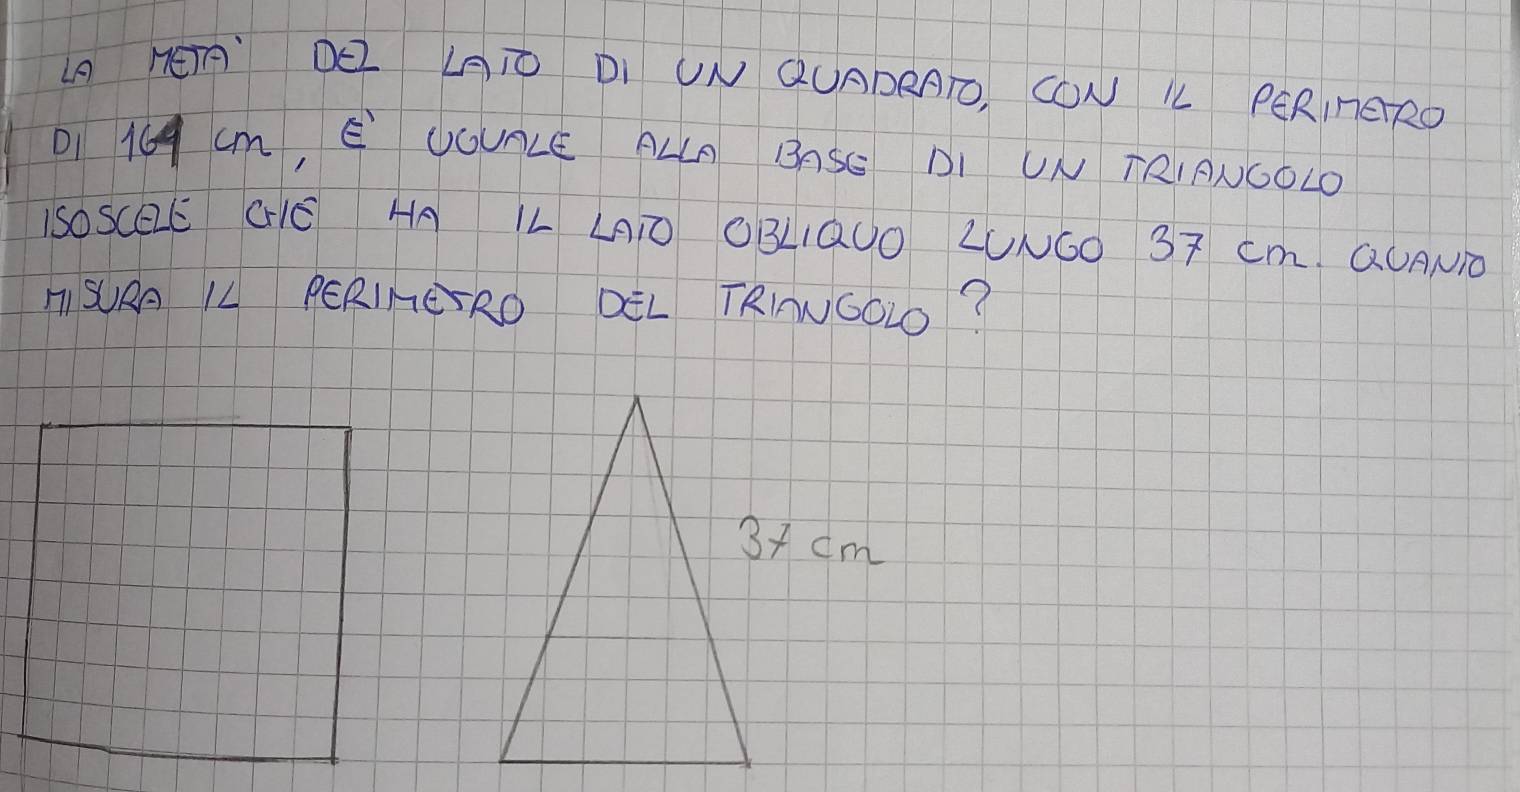 LA METÀ DEL LATO DI UN QUADRATO, CON IL PERIMETRO
DI 164 cm, È UGUALE ALLA BASE DI UN TRIANGOLO
ISOSCELE CHE HA IL LATO OBLIQUO LUNGO 37 cm. QUANTO
MISURA IL PERIMETRO DEL TRIANGOLO?
37 cm